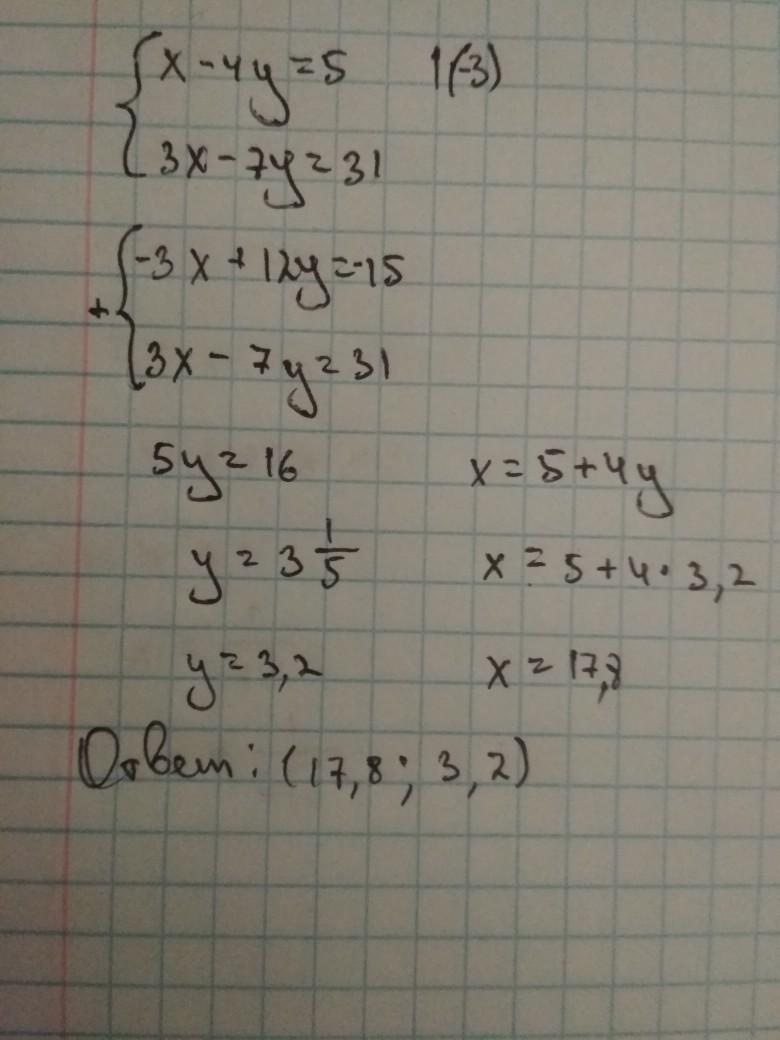 x - 4y = 5 |(-3)
3x - 7y = 31
-3x + 12y = -15
+
3x - 7y = 31
5y = 16 x = 5 + 4y
y = 3 1/5 x = 5 + 4 · 3,2
y = 3,2 x = 17,8
Ответ: (17,8; 3,2)